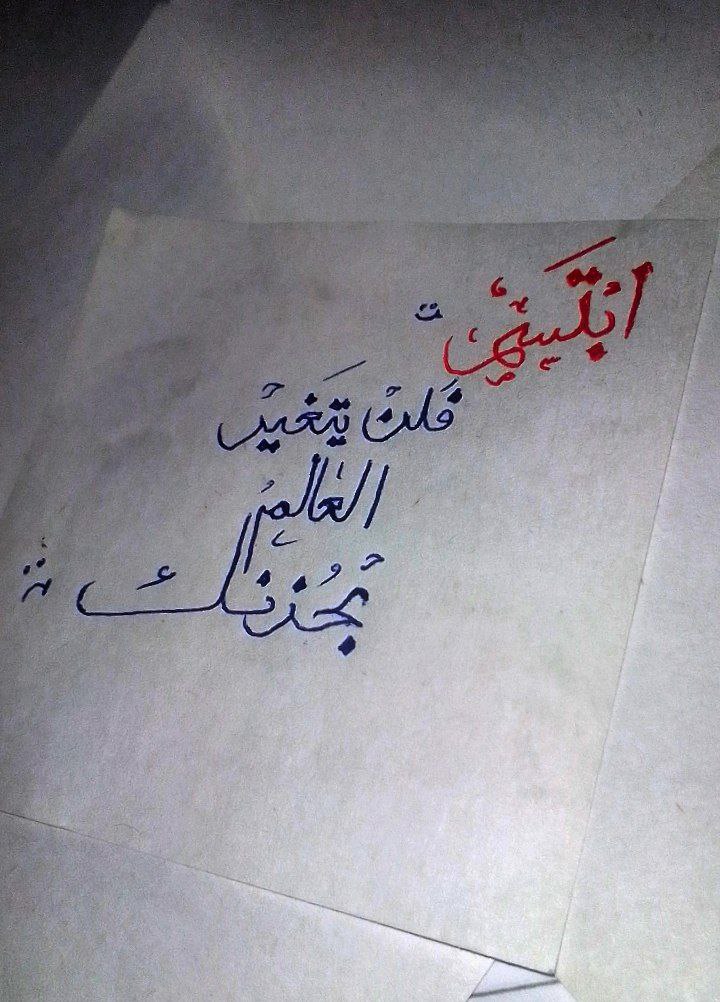 ابتسمي
فلن يتغير
العالم
بحزنك